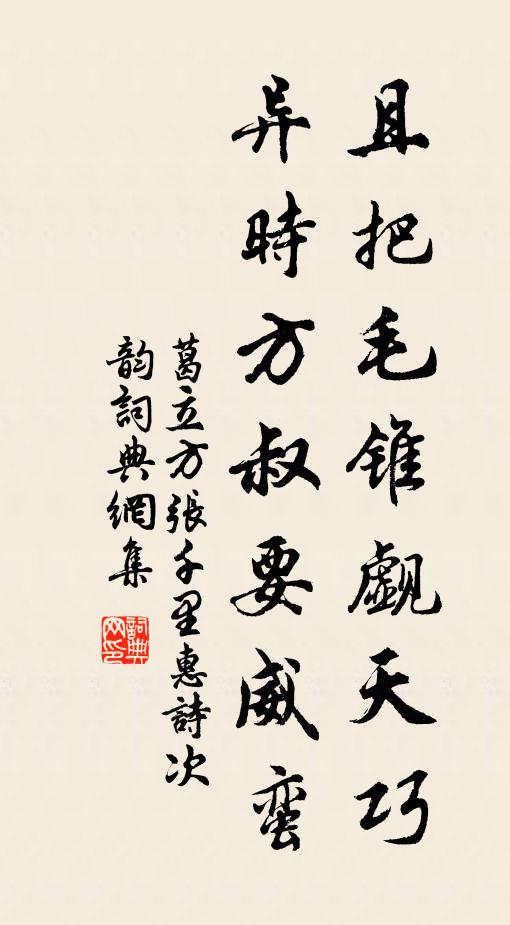 且把毛锥觑天巧
异時方叔要威蛮
葛立方張千里惠詩次
韵詞典網集
詞典网印